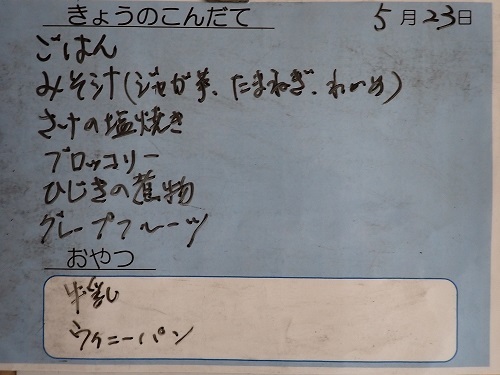 きょうのこんだて 5月23日
ごはん
みそ汁(ジャガ芋、たまねぎ、わかめ)
さけの塩焼き
ブロッコリー
ひじきの煮物
グレープフルーツ
おやつ
牛乳
ウィニーパン